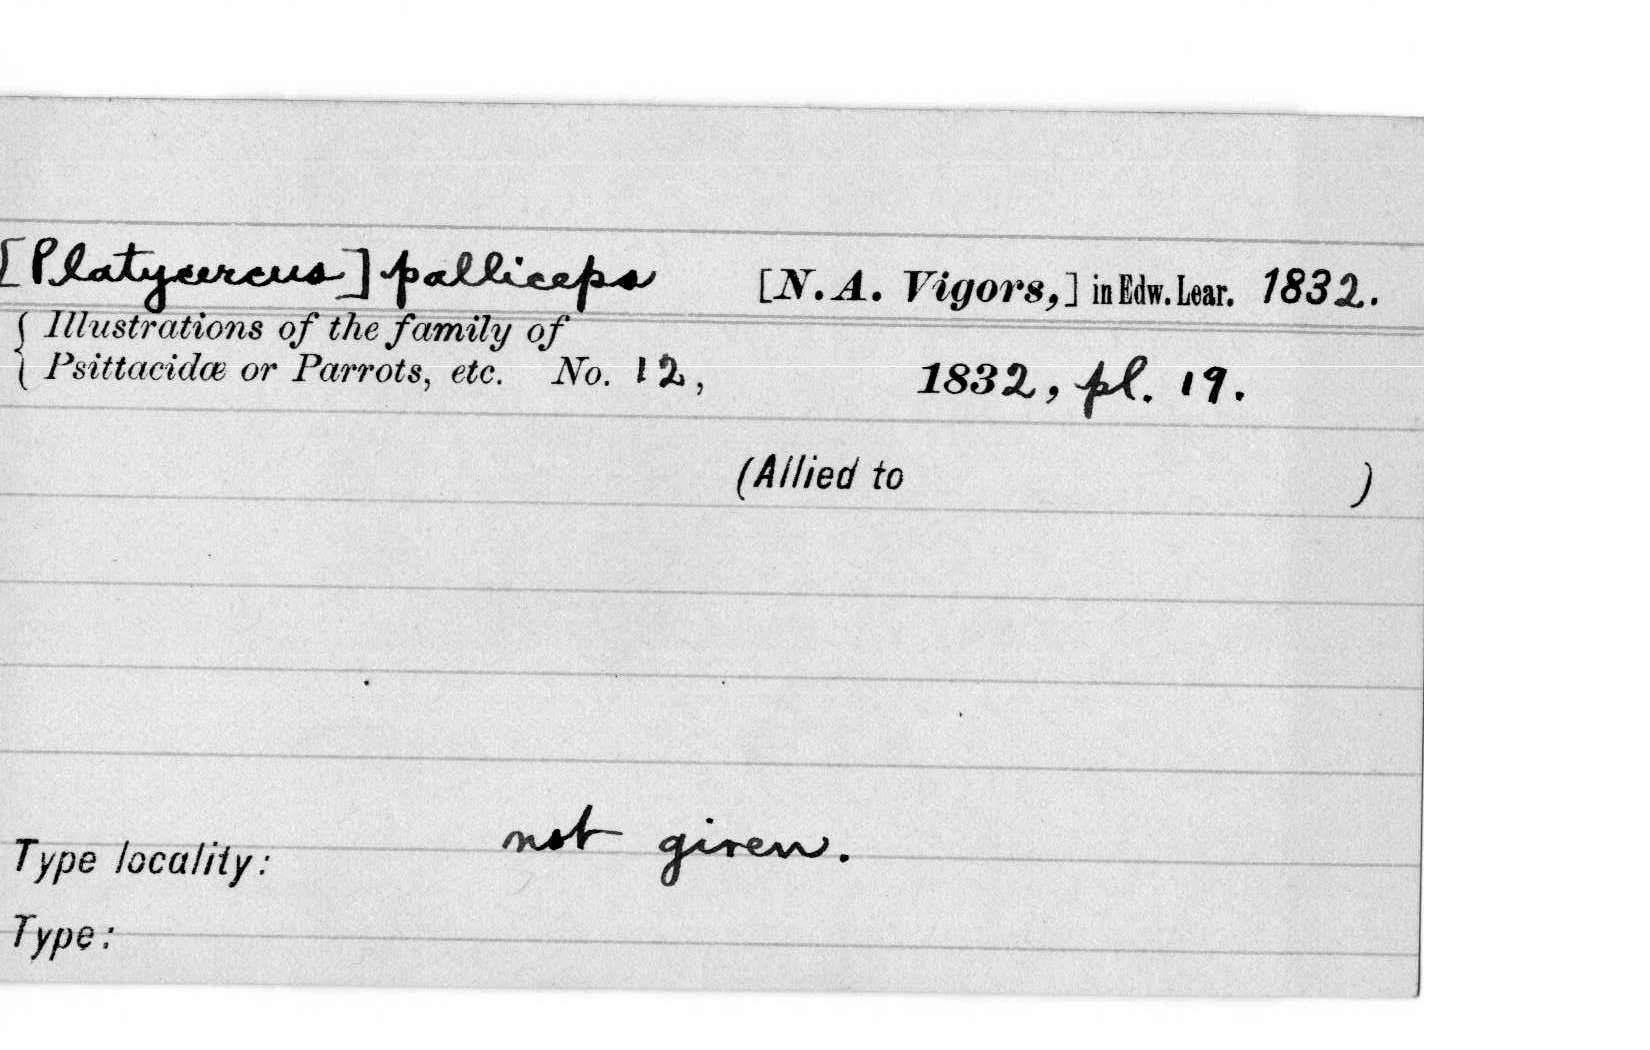 [Platycercus] palliceps [N. A. Vigors,] in Edw. Lear. 1832.
Illustrations of the family of
Psittacidæ or Parrots, etc. No. 12, 1832, pl. 19.
(Allied to )
Type locality: not given.
Type: